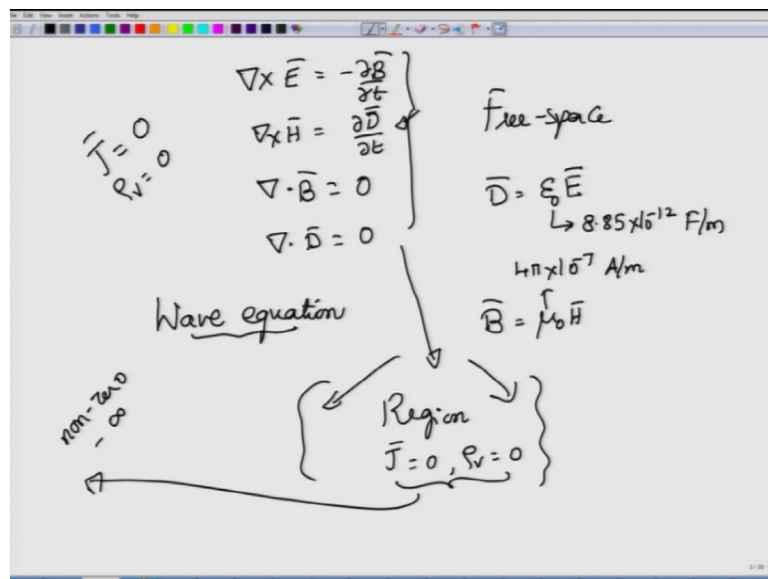 File Edit View Insert Actions Tools Help
∇× E̅ = -∂B̅/∂t
∇×H̅ = ∂D̅/∂t
∇·B̅ = 0
∇·D̅ = 0
J̅ = 0
ρv = 0
Free-space
D̅ = ε₀E̅
↳ 8.85×10⁻¹² F/m
4π×10⁻⁷ A/m
B̅ = μ₀H̅
Wave equation
non-zero
- ∞
Region
J̅ = 0, ρv = 0